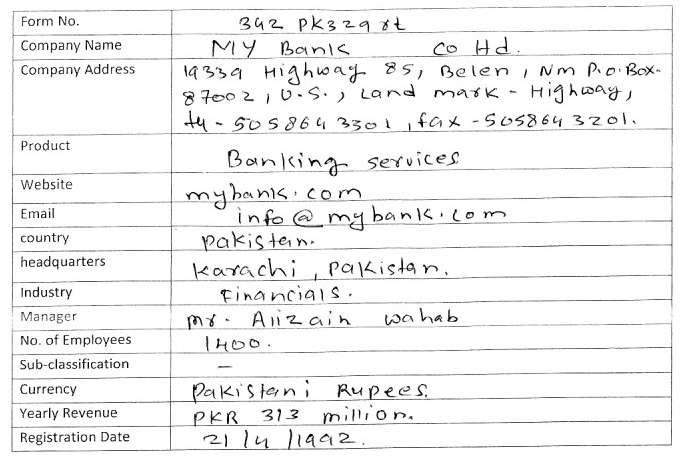 Form No. 342 PK329rt
Company Name MY Bank co Hd.
Company Address 19339 Highway 85, Belen, Nm P.O.Box-
87002, U.S., Land mark - Highway,
ty - 5058643301, fax - 5058643201.
Product Banking services
Website mybank.com
Email info@mybank.com
country Pakistan.
headquarters Karachi, Pakistan.
Industry Financials.
Manager mr. Alizain wahab
No. of Employees 1400.
Sub-classification –
Currency Pakistani Rupees.
Yearly Revenue PKR 313 million.
Registration Date 21/4/1992.